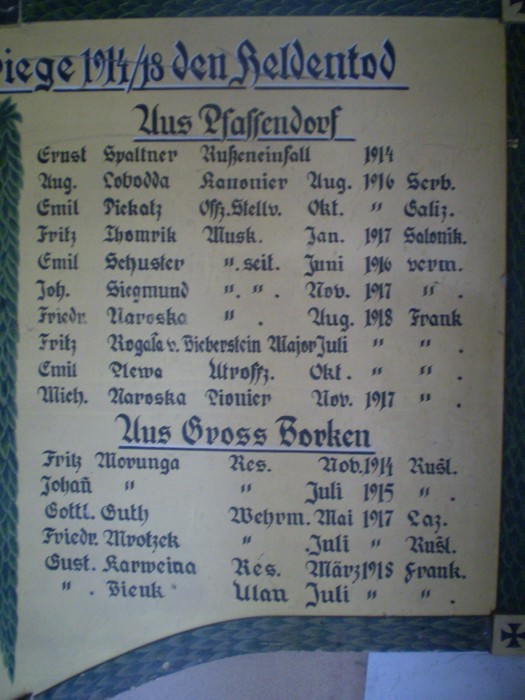 iege 1914/18 den Heldentod
Aus Pfaffendorf
Ernst Spaltner Rußeneinfall 1914
Aug. Lobodda Kanonier Aug. 1916 Serb.
Emil Piekatz Offz.Stellv. Okt. " Galiz.
Fritz Thomrik Musk. Jan. 1917 Salonik.
Emil Schuster ". seit. Juni 1916 verm.
Joh. Siegmund ". ". Nov. 1917 " .
Friedr. Naroska " . Aug. 1918 Frank
Fritz Rogala v. Bieberstein Major Juli " " .
Emil Plewa Utroffz. Okt. " " .
Mich. Naroska Pionier Nov. 1917 " .
Aus Gross Borken
Fritz Morunga Res. Nov. 1914 Rußl.
Johañ " " Juli 1915 " .
Gottl. Guth Wehrm. Mai 1917 Laz.
Friedr. Mrotzek " Juli " Rußl.
Gust. Karweina Res. März 1918 Frank.
" . Bienk Ulan Juli " " .